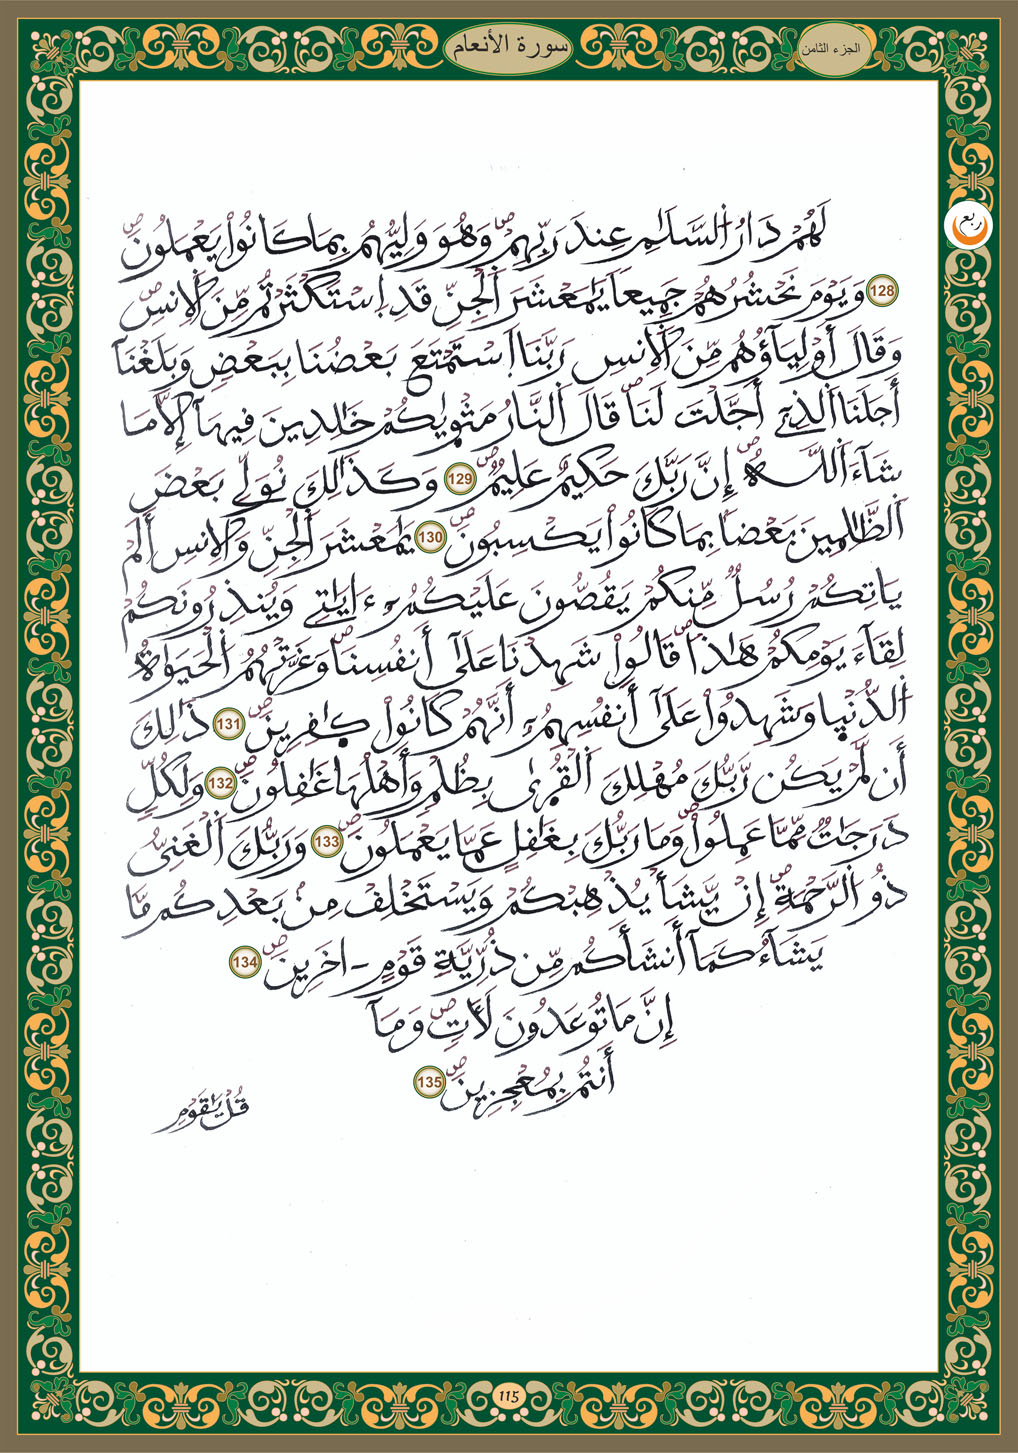 سورة الأنعام
الجزء الثامن
ربع
لَهُمْ دَارُ اُ۬لسَّلَٰمِ عِندَ رَبِّهِمْۖ وَهُوَ وَلِيُّهُم بِمَا كَانُواْ يَعْمَلُونَۖ
128 وَيَوْمَ نَحْشُرُهُمْ جَمِيعاٗ يَٰمَعْشَرَ اَ۬لْجِنِّ قَدِ اِ۪سْتَكْثَرْتُم مِّنَ اَ۬لِانسِۖ
وَقَالَ أَوْلِيَآؤُهُم مِّنَ اَ۬لِانسِ رَبَّنَا اَ۪سْتَمْتَعَ بَعْضُنَا بِبَعْضٖ وَبَلَغْنَآ
أَجَلَنَا اَ۬لذِےٓ أَجَّلْتَ لَنَاۖ قَالَ اَ۬لنَّارُ مَثْوٜيٰكُمْ خَٰلِدِينَ فِيهَآ إِلَّا مَا
شَآءَ اَ۬للَّهُۖ إِنَّ رَبَّكَ حَكِيمٌ عَلِيمٞۖ 129 وَكَذَٰلِكَ نُوَلِّے بَعْضَ
اَ۬لظَّٰلِمِينَ بَعْضاَۢ بِمَا كَانُواْ يَكْسِبُونَۖ 130 يَٰمَعْشَرَ اَ۬لْجِنِّ وَالِانسِ أَلَمْ
يَاتِكُمْ رُسُلٞ مِّنكُمْ يَقُصُّونَ عَلَيْكُمُۥٓ ءَايَٰتِے وَيُنذِرُونَكُمْ
لِقَآءَ يَوْمِكُمْ هَٰذَاۖ قَالُواْ شَهِدْنَا عَلَيٰٓ أَنفُسِنَاۖ وَغَرَّتْهُمُ اُ۬لْحَيَوٰةُ
اُ۬لدُّنْيٜا وَشَهِدُواْ عَلَيٰٓ أَنفُسِهِمُۥٓ أَنَّهُمْ كَانُواْ كٰٜفِرِينَۖ 131 ذَٰلِكَ
أَن لَّمْ يَكُن رَّبُّكَ مُهْلِكَ اَ۬لْقُرٜيٰ بِظُلْمٖ وَأَهْلُهَا غَٰفِلُونَۖ 132 وَلِكُلّٖ
دَرَجَٰتٞ مِّمَّا عَمِلُواْۖ وَمَا رَبُّكَ بِغَٰفِلٍ عَمَّا يَعْمَلُونَۖ 133 وَرَبُّكَ اَ۬لْغَنِيُّ
ذُو اُ۬لرَّحْمَةِۖ إِنْ يَّشَأْ يُذْهِبْكُمْ وَيَسْتَخْلِفْ مِنۢ بَعْدِكُم مَّا
يَشَآءُ كَمَآ أَنشَأَكُم مِّن ذُرِّيَّةِ قَوْمٍ ـ اخَرِينَۖ 134
إِنَّ مَا تُوعَدُونَ لَأٓتٖۖ وَمَآ
أَنتُم بِمُعْجِزِينَۖ 135
قُلْ يَٰقَوْمِ
115